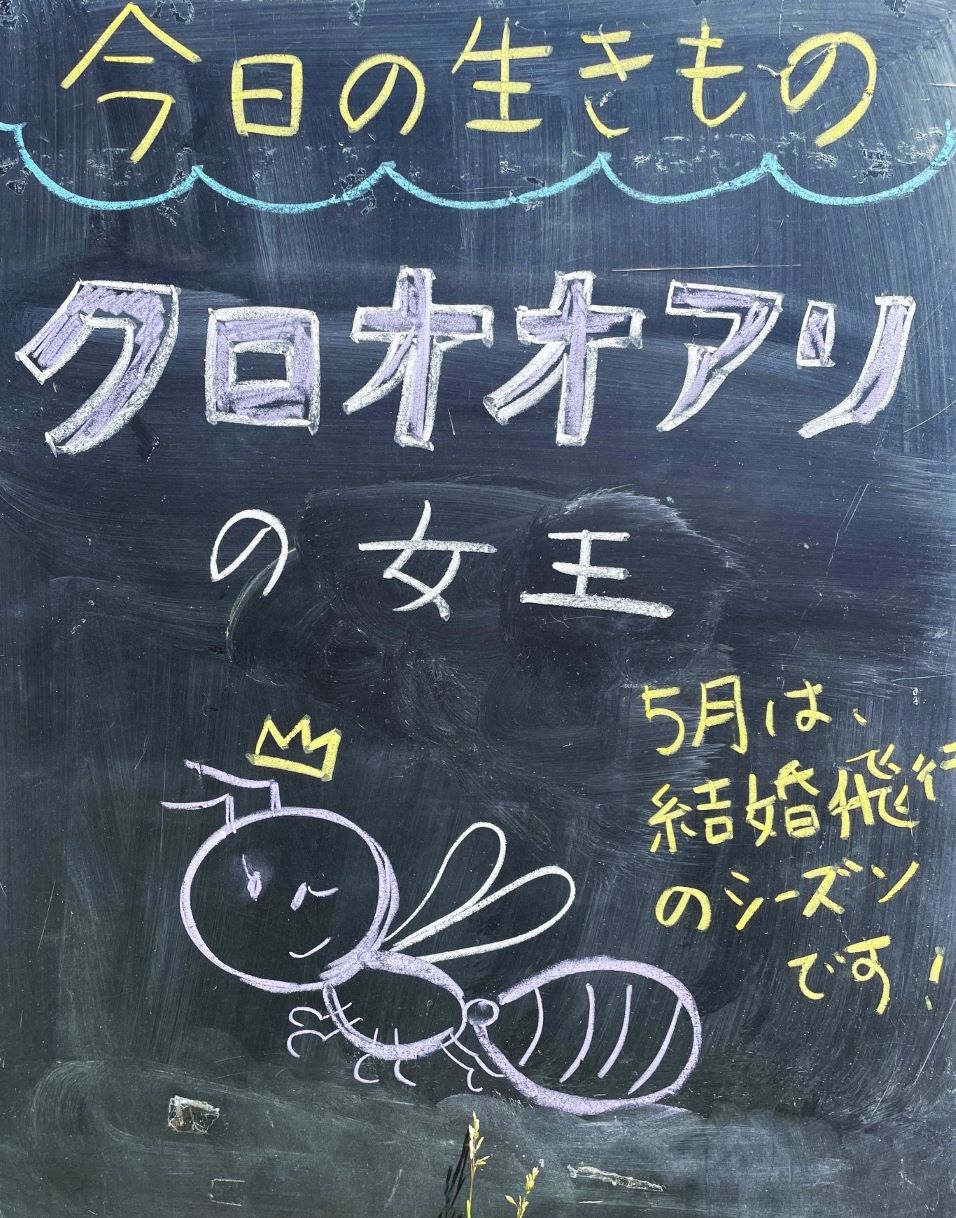 今日の生きもの
クロオオアリ
の女王
5月は、
結婚飛行
のシーズン
です！